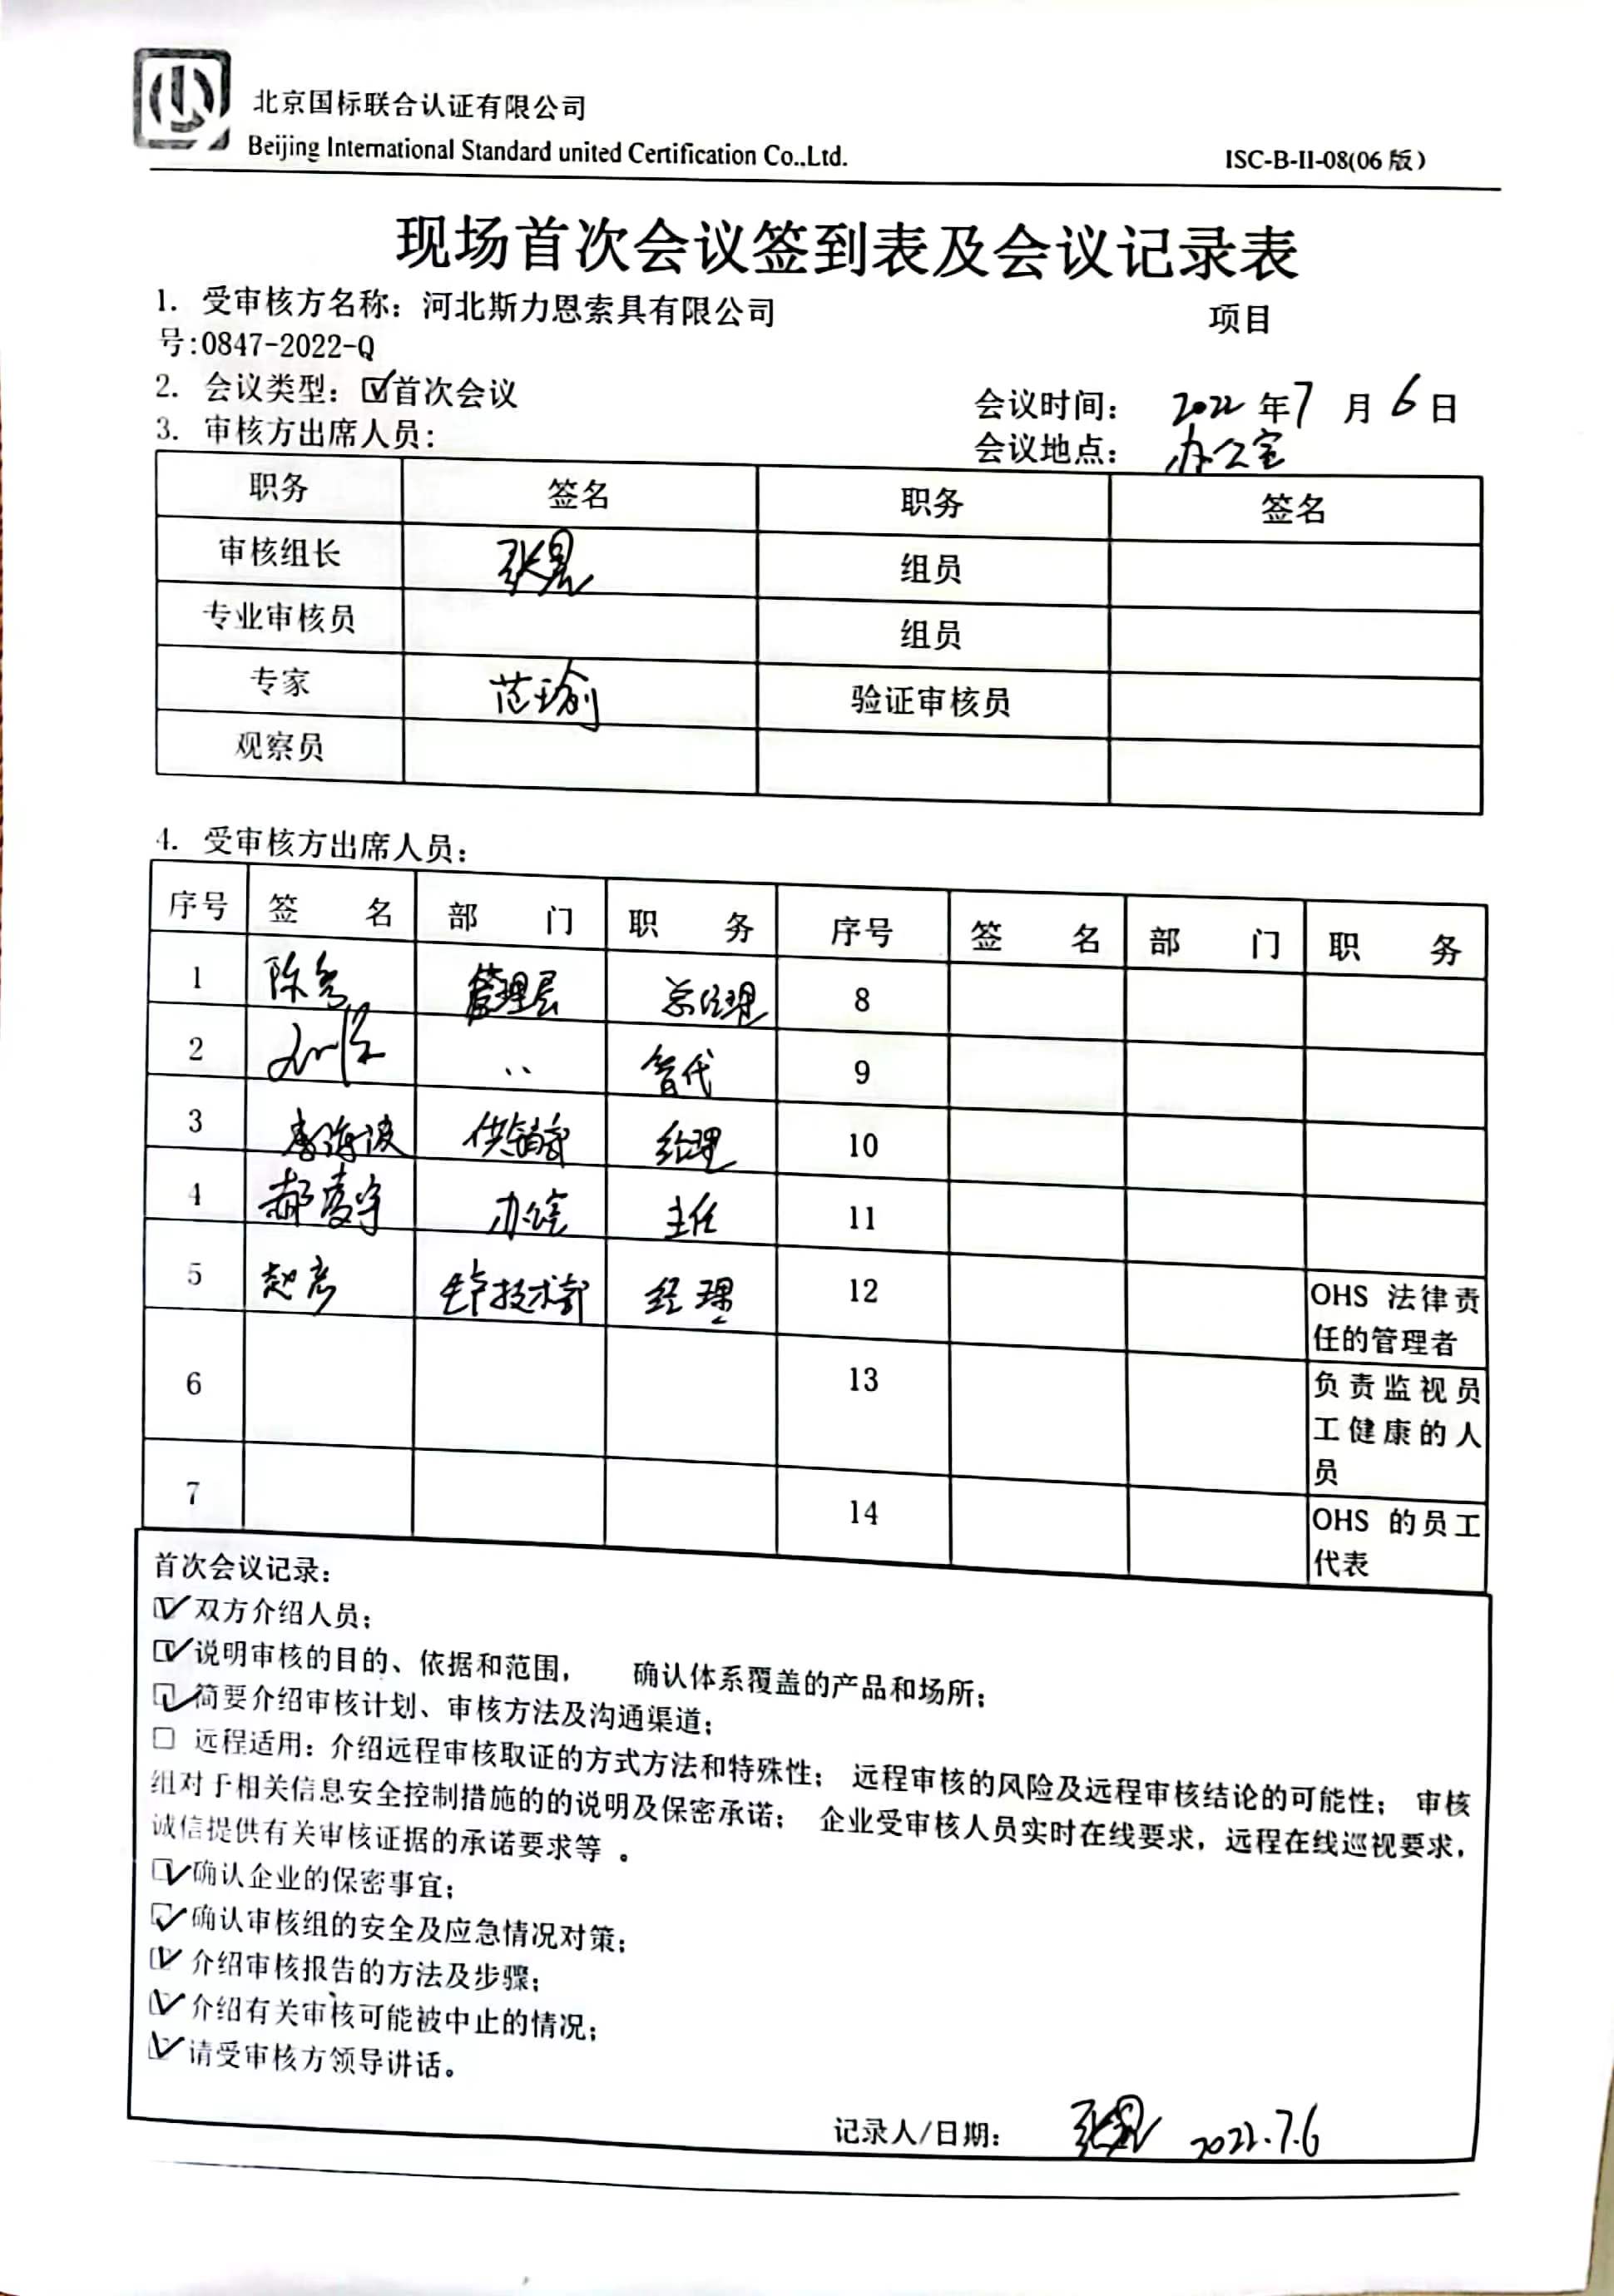 北京国标联合认证有限公司
Beijing International Standard united Certification Co.,Ltd.
ISC-B-II-08(06 版)
现场首次会议签到表及会议记录表
1. 受审核方名称：河北斯力恩索具有限公司 项目
号:0847-2022-Q
2. 会议类型：☑首次会议 会议时间： 2022 年 7 月 6 日
3. 审核方出席人员： 会议地点： 办公室
职务 签名 职务 签名
审核组长 组员
专业审核员 组员
专家 范瑜 验证审核员
观察员
4. 受审核方出席人员：
序号 签 名 部 门 职 务 序号 签 名 部 门 职 务
1 管理层 总经理 8
2 〃 管代 9
3 供销部 经理 10
4 办公室 主任 11
5 赵彦 生产技术部 经理 12 OHS 法律责
任的管理者
6 13 负责监视员
工健康的人
员
7 14 OHS 的员工
代表
首次会议记录：
☑双方介绍人员；
☑说明审核的目的、依据和范围， 确认体系覆盖的产品和场所；
☑简要介绍审核计划、审核方法及沟通渠道；
☐ 远程适用：介绍远程审核取证的方式方法和特殊性； 远程审核的风险及远程审核结论的可能性； 审核
组对于相关信息安全控制措施的的说明及保密承诺； 企业受审核人员实时在线要求，远程在线巡视要求，
诚信提供有关审核证据的承诺要求等 。
☑确认企业的保密事宜；
☑确认审核组的安全及应急情况对策；
☑介绍审核报告的方法及步骤；
☑介绍有关审核可能被中止的情况；
☑请受审核方领导讲话。
记录人/日期： 2022.7.6